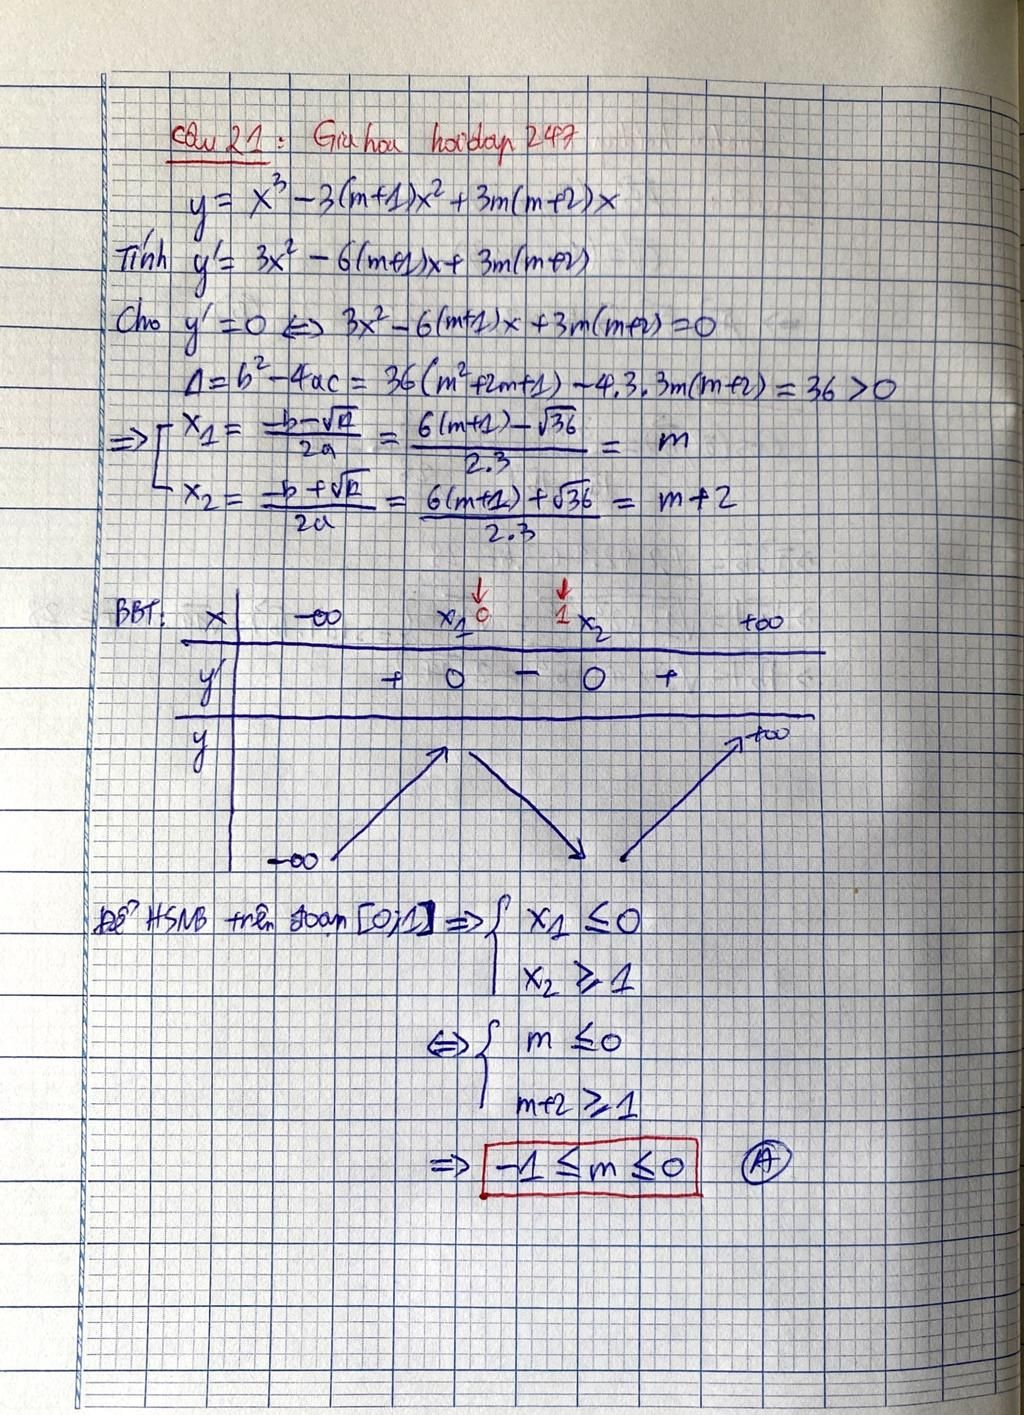 Câu 21: Gia hou hoidap 247
y = x³ - 3(m+1)x² + 3m(m+2)x
Tính y' = 3x² - 6(m+1)x + 3m(m+2)
Cho y' = 0 ⇔ 3x² - 6(m+1)x + 3m(m+2) = 0
Δ = b² - 4ac = 36(m²+2m+1) - 4.3.3m(m+2) = 36 > 0
⇒ [ x₁ = (-b-√Δ)/2a = (6(m+1) - √36)/2.3 = m
x₂ = (-b+√Δ)/2a = (6(m+1) + √36)/2.3 = m+2
↓ ↓
BBT: x | -∞ x₁ 0 1 x₂ +∞
y' | + 0 - 0 +
y | +∞
-∞
Để HSNB trên đoạn [0;1] ⇒ { x₁ ≤ 0
x₂ ≥ 1
⇔ { m ≤ 0
m+2 ≥ 1
⇒ -1 ≤ m ≤ 0 Ⓐ